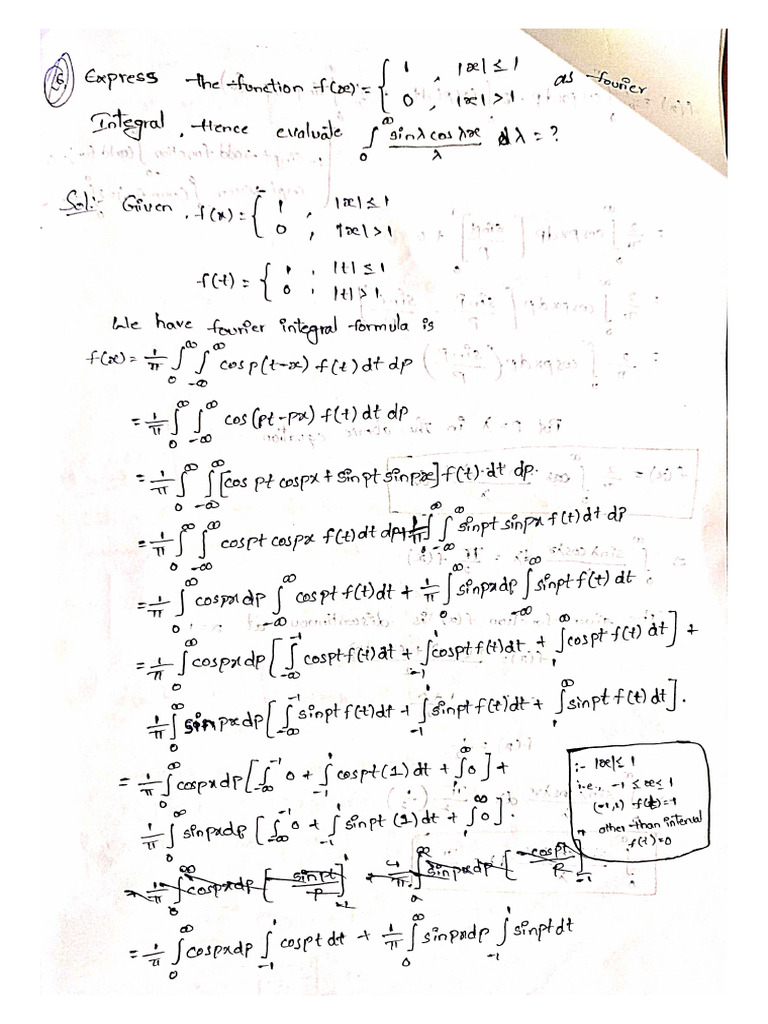 26) Express the function f(x) = { 1 , |x| ≤ 1
0 , |x| > 1 as fourier
Integral, Hence evaluate ∫₀^∞ sinλ cos λx / λ dλ = ?
Sol:- Given, f(x) = { 1 , |x| ≤ 1
0 , |x| > 1
f(t) = { 1 , |t| ≤ 1
0 , |t| > 1
We have fourier integral formula is
f(x) = 1/π ∫₀^∞ ∫_-∞^∞ cos p(t-x) f(t) dt dp
= 1/π ∫₀^∞ ∫_-∞^∞ cos (pt-px) f(t) dt dp
= 1/π ∫₀^∞ ∫_-∞^∞ [cos pt cospx + sinpt sinpx] f(t)·dt dp.
= 1/π ∫₀^∞ ∫_-∞^∞ cospt cospx f(t) dt dp + 1/π ∫₀^∞ ∫_-∞^∞ sinpt sinpx f(t) dt dp
= 1/π ∫₀^∞ cospx dp ∫_-∞^∞ cos pt f(t) dt + 1/π ∫₀^∞ sinpx dp ∫_-∞^∞ sinpt f(t) dt
= 1/π ∫₀^∞ cospx dp [∫_-∞^-1 cospt f(t) dt + ∫_-1^1 cospt f(t) dt + ∫_1^∞ cospt f(t) dt] +
1/π ∫₀^∞ sin px dp [∫_-∞^-1 sinpt f(t) dt + ∫_-1^1 sinpt f(t) dt + ∫_1^∞ sinpt f(t) dt].
= 1/π ∫₀^∞ cospx dp [∫_-∞^-1 0 + ∫_-1^1 cospt (1) dt + ∫_1^∞ 0] +
1/π ∫₀^∞ sinpx dp [∫_-∞^-1 0 + ∫_-1^1 sinpt (1) dt + ∫_1^∞ 0].
:- |x| ≤ 1
i.e., -1 ≤ x ≤ 1
(-1,1) f(t)=1
other than interval
f(t)=0
= 1/π ∫₀^∞ cospx dp ∫_-1^1 cospt dt + 1/π ∫₀^∞ sinpx dp ∫_-1^1 sinpt dt